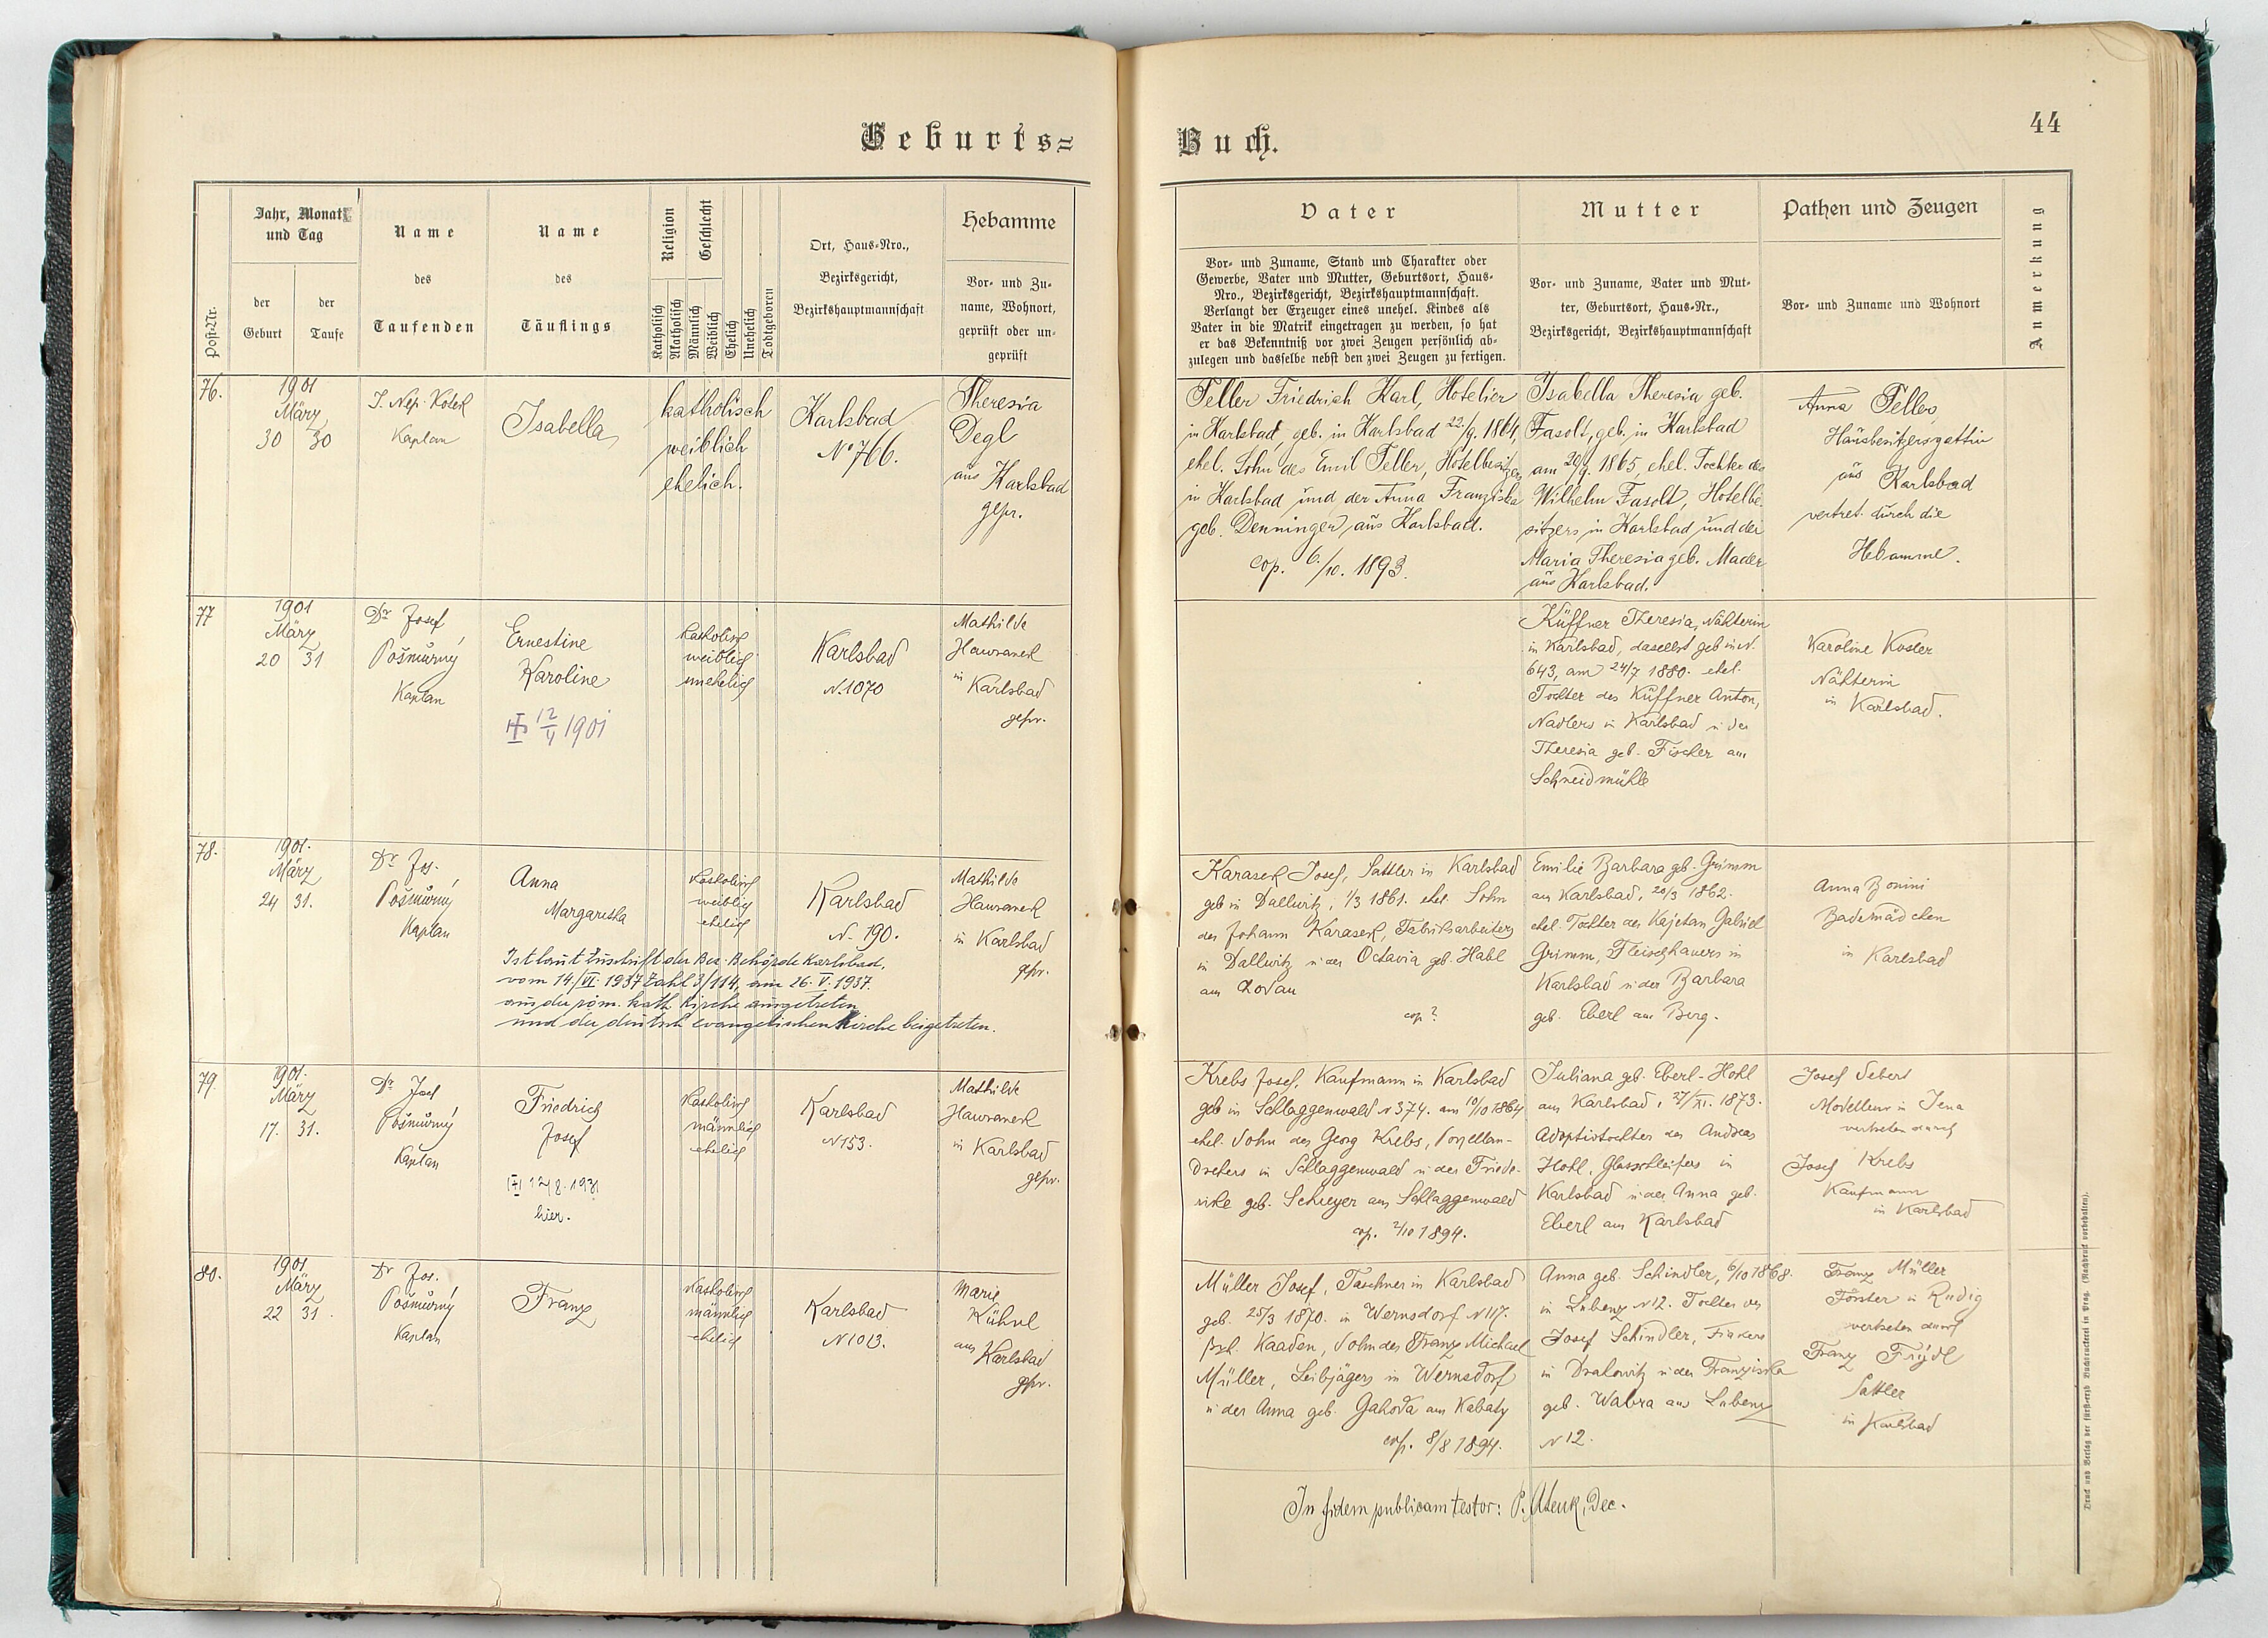 Geburts=
Buch.
44
Post-Nr.
Jahr, Monat
und Tag
der
Geburt
der
Taufe
Name
des
Taufenden
Name
des
Täuflings
Religion
Katholisch
Akatholisch
Geschlecht
Männlich
Weiblich
Ehelich
Unehelich
Todtgeboren
Ort, Haus-Nro.,
Bezirksgericht,
Bezirkshauptmannschaft
Hebamme
Vor- und Zu-
name, Wohnort,
geprüft oder un-
geprüft
Vater
Vor- und Zuname, Stand und Charakter oder
Gewerbe, Vater und Mutter, Geburtsort, Haus-
Nro., Bezirksgericht, Bezirkshauptmannschaft.
Verlangt der Erzeuger eines unehel. Kindes als
Vater in die Matrik eingetragen zu werden, so hat
er das Bekenntniß vor zwei Zeugen persönlich ab-
zulegen und dasselbe nebst den zwei Zeugen zu fertigen.
Mutter
Vor- und Zuname, Vater und Mut-
ter, Geburtsort, Haus-Nr.,
Bezirksgericht, Bezirkshauptmannschaft
Pathen und Zeugen
Vor- und Zuname und Wohnort
Anmerkung
76.
1901
März
30 30
J. Nep. Kotek
Kaplan
Isabella
katholisch
weiblich
ehelich.
Karlsbad
No 766.
Theresia
Degl
aus Karlsbad
gepr.
Teller Friedrich Karl, Hotelier
in Karlsbad, geb. in Karlsbad 22/9. 1864,
ehel. Sohn des Emil Teller, Hotelbesitzers
in Karlsbad und der Anna Franziska
geb. Denninger aus Karlsbad.
cop. 6./10. 1893.
Isabella Theresia geb.
Fasolt, geb. in Karlsbad
am 29/9. 1865, ehel. Tochter des
Wilhelm Fasolt, Hotelbe-
sitzers in Karlsbad und der
Maria Theresia geb. Mader
aus Karlsbad.
Anna Teller,
Hausbesitzersgattin
aus Karlsbad
vertret. durch die
Hebamme.
77
1901
März
20 31
Dr Josef
Pošmůrný
Kaplan
Ernestine
Karoline
12/4 1901
katholisch
weiblich
unehelich
Karlsbad
N. 1070
Mathilde
Hawranek
in Karlsbad
gepr.
Küffner Theresia, Nähterin
in Karlsbad, daselbst geb in N.
643, am 24/7 1880. ehel.
Tochter des Küffner Anton,
Nadlers in Karlsbad u der
Theresia geb. Fischer aus
Schneidmühle
Karoline Koster
Nähterin
in Karlsbad.
78.
1901.
März
24 31.
Dr Jos.
Pošmůrný
Kaplan
Anna
Margaretha
katholisch
weiblich
ehelich
Karlsbad
N. 190.
Mathilde
Hawranek
in Karlsbad
gepr.
Ist laut Zuschrift der Bez. Behörde Karlsbad,
vom 14./VI. 1937 Zahl 3/114, am 26. V. 1937.
aus der röm. kath. Kirche ausgetreten
und der deutsch evangelischen Kirche beigetreten.
Karasek Josef, Sattler in Karlsbad
geb in Dallwitz, 1/3 1861. ehel. Sohn
des Johann Karasek, Fabriksarbeiters
in Dallwitz u der Octavia geb. Habl
aus Lodau
cop?
Emilie Barbara geb. Grimm
aus Karlsbad, 20/3 1862.
ehel. Tochter des Kajetan Gabriel
Grimm, Fleischhauers in
Karlsbad u der Barbara
geb. Eberl aus Berg.
Anna Bonini
Bademädchen
in Karlsbad
79.
1901.
März
17. 31.
Dr Josef
Pošmůrný
Kaplan
Friedrich
Josef
12/8. 1931
hier.
katholisch
männlich
ehelich
Karlsbad
N 153.
Mathilde
Hawranek
in Karlsbad
gepr.
Krebs Josef, Kaufmann in Karlsbad
geb in Schlaggenwald N 374. am 10/10 1864
ehel. Sohn des Georg Krebs, Porzellan-
drehers in Schlaggenwald u der Friede-
rike geb. Schreyer aus Schlaggenwald
cop. 2/10 1894.
Juliana geb. Eberl-Hohl
aus Karlsbad, 27/XI. 1873.
Adoptivtochter des Andreas
Hohl, Glasschleifers in
Karlsbad u der Anna geb.
Eberl aus Karlsbad
Josef Sebert
Modelleur in Jena
vertreten durch
Josef Krebs
Kaufmann
in Karlsbad
80.
1901
März
22 31.
Dr Jos.
Pošmůrný
Kaplan
Franz
katholisch
männlich
ehelich
Karlsbad
N 1013.
Marie
Kühnl
aus Karlsbad
gepr.
Müller Josef, Taschner in Karlsbad
geb. 25/3 1870. in Wernsdorf N 117.
Bzk. Kaaden, Sohn des Franz Michael
Müller, Leibjägers in Wernsdorf
u der Anna geb. Gahoda aus Kabaty
cop. 8/8 1894.
Anna geb. Schindler, 6/10 1868.
in Lubenz N 12. Tochter des
Josef Schindler, Fiakers
in Drahowitz u der Franziska
geb. Wabra aus Lubenz
N 12.
Franz Müller
Förster in Rudig
vertreten durch
Franz Frijdl
Sattler
in Karlsbad
In fidem publicam testor: P. Dec.
Druck und Verlag der fürsterzb. Buchdruckerei in Prag. (Nachdruck vorbehalten).